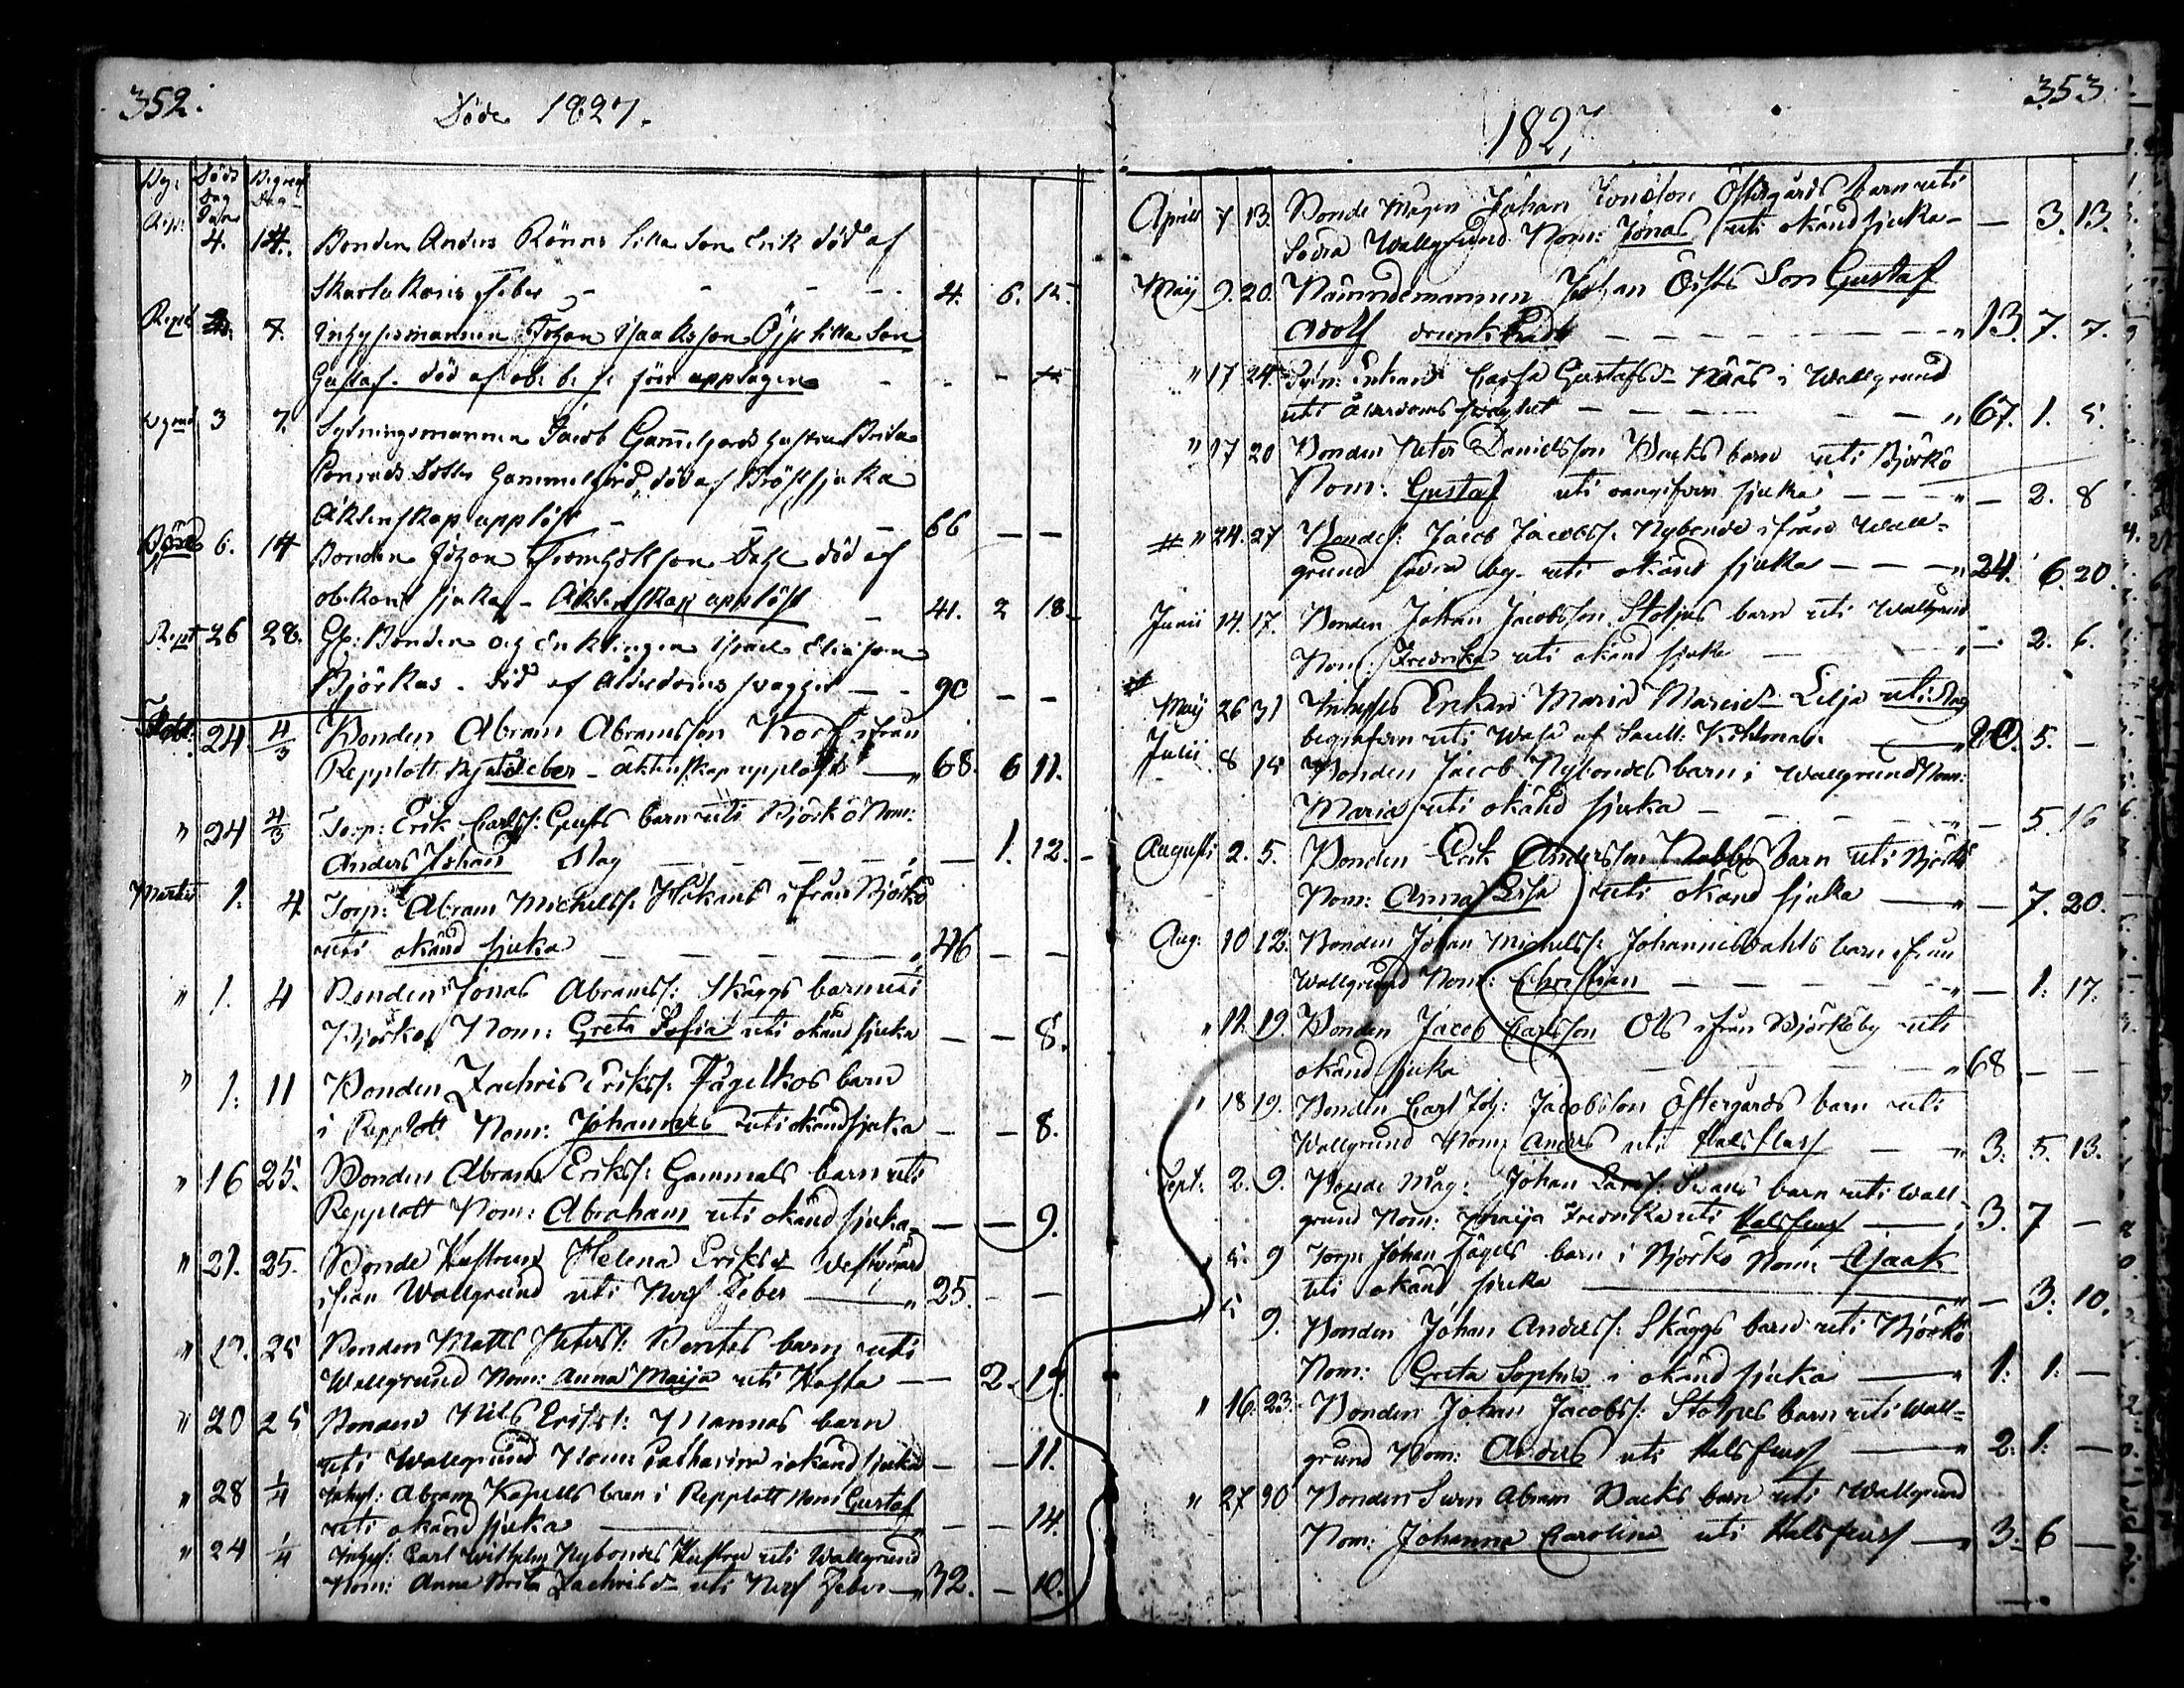 352.
Döde 1827.
By:
Döds Dag
Begraf Dag
4. 14. Bonden Anders Rönns lilla Son Erik död af
Skarlakans feber - - - - 4. 6. 15.
7. Inhysesmannen Johan Isaksson Öjst lilla Son
Gustaf. död af ob: b: s: förr upptagen - - -
3 7. Sytningsmannen Jacob Gammelgårds hustru Brita
Conrads Dotter Gammelgård, död af Bröstsjuka
Äktenskap upplöst - - - 66 — —
6. 14 Bonden Johan Dahl död af
obekant sjuka - Äktenskap upplöst - 41. 2 18.
Replt 26 28. Gl: Bonden och Enklingen Israel Eliasson
Björkas. död af Ålderdoms svaghet — - 90 — —
Febr: 24 4/3 Bonden Abram Abramsson Korf ifrån
Repplott feber - äktenskap upplöst — " 68. 6 11.
" 24 4/3 Torp: Erik Carlss: Gusts barn uti Björkö Nom:
Anders Johan Slag — — — — — 1. 12.
Martii 1. 4. Torp: Abram Michelss: Håkans ifrån Björkö
uti okänd sjuka — — — — — " 46 — —
" 1. 4 Bonden Jonas Abramss: Skäggs barn uti
Björkö Nom: Greta Sofia uti okänd sjuka — — 8.
" 1. 11 Bonden Zachris Erikss: Fågelkos barn
i Repplott Nom: Johannes uti okänd sjuka — — 8.
" 16 25. Bonden Abram Erikss: Gammals barn uti
Repplott Nom: Abraham uti okänd sjuka — — 9.
" 21. 25. Bonde Hustrun Helena Eriksd
ifrån Wallgrund uti Nerf Feber — " 25. — —
" 25 Bonden Matts Peterss: Bertes barn uti
Wallgrund Nom: Anna Maija uti Hosta — — 2. 19.
" 20 25 Bonden Nils Erikss: Mannas barn
uti Wallgrund Nom: Catharina i okänd sjuka — — 11.
" 28 1/4 Inhys: Abram Kapells barn i Repplott Nom: Gustaf
uti okänd sjuka — " — — 14.
" 24 1/4 Inhys: Carl Wilhelm Nybondes Hustru uti Wallgrund
Nom: Anna Brita Zachrisd uti Nerf Feber — " 32. — 10.
353.
1827,
April 7 13. Bonde Mågen Johan Jonsson Östergårds barn uti
Södra Wallgrund Nom: Jonas uti okänd sjuka - — 3. 13.
Maij 9. 20. Nämndemannen Johan Öists Son Gustaf
Adolf drunknade — — — — " 13. 7. 7.
" 17 24. Sytn: Enkan Caisa Gustafsd Näås i Wallgrund
uti Ålderdoms svaghet — — — — " 67. 1. 5.
" 17 20 Bonden Peter Danielsson Backs barn uti Björkö
Nom: Gustaf uti oangifven sjuka — — — " — 2. 8
" 24. 27 Bondes: Jacob Jacobss: Nybonde ifrån Wall=
grund södra by uti okänd sjuka — — — " 24. 6. 20.
Junii 14. 17. Bonden Johan Jacobsson Stolpes barn uti Wallgrund
Nom: Fredrika uti okänd sjuka — " — 2. 6.
Maij 26 31 Inhyses Enkan Maria Lilja uti Slag
begrafven uti Wasa af — " 5. —
Julii 8 15 Bonden Jacob Nybondes barn i Wallgrund Nom:
Maria uti okänd sjuka — — — — — " — 5. 16
Augusti 2. 5. Bonden Erik Andersson Nabbs barn uti Björkö
Nom: Anna Lisa uti okänd sjuka — " — 7. 20.
Aug: 10 12. Bonden Johan Michelss: Johannisdahls barn ifrån
Wallgrund Nom: Christian — — — — — " — 1. 17.
" 11. 19. Bonden Jacob Carlsson Ols ifrån Björköby uti
okänd sjuka — — — — " 68 — —
" 18 19. Bonden Carl Joh: Jacobsson Östergårds barn uti
Wallgrund Nom: Anders uti Halsfluss — " 3. 5. 13.
Sept: 2. 9. Bonde Måg: Johan Larss: Svans barn uti Wall=
grund Nom: Maija Fredrika uti Halsfluss — " 3. 7 —
" 5. 9 Torp: Johan Fågels barn i Björkö Nom: Isaak
uti okänd sjuka — " — 3. 10.
" 5 9. Bonden Johan Anderss: Skäggs barn uti Björkö
Nom: Greta Sophia i okänd sjuka — " 1. 1. —
" 16. 23. Bonden Johan Jacobss: Stolpes barn uti Wall=
grund Nom: Anders uti Halsfluss — " 2. 1. —
" 27 30 Bonden Sven Abram Backs barn uti Wallgrund
Nom: Johanna Carolina uti Halsfluss — " 3. 6 —